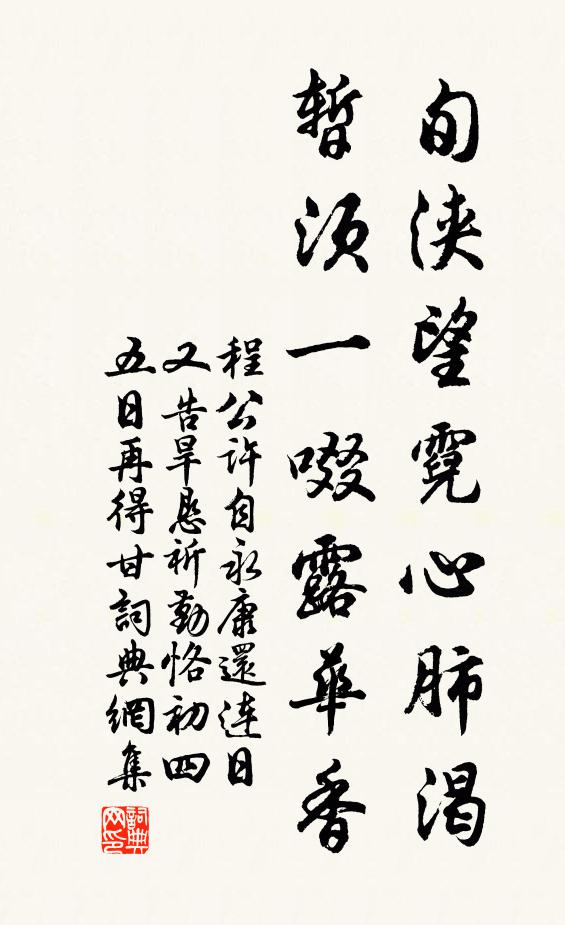 旬浹望霓心肺渴
暫須一啜露華香
程公許自永康還連日
又告旱懇祈勤恪初四
五日再得甘詞典網集
詞典
网印